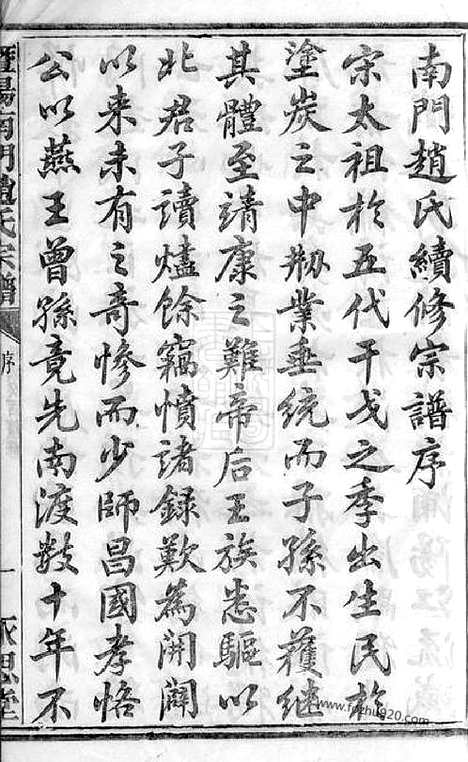 南門趙氏續修宗譜序
宋太祖於五代干戈之季出生民於
塗炭之中刱業垂統而子孫不獲繼
其體至靖康之難帝后王族悉驅以
北君子讀燼餘竊憤諸錄歎為開闢
以来未有之奇慘而少師昌國孝恪
公以燕王曾孫竟先南渡數十年不
暨陽南門趙氏宗譜
序
一
永思堂
www.fozhu920.com